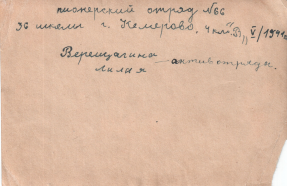 пионерский отряд №66
36 школы г. Кемерово. 4 кл. "В" V/1941г.
Верещагина
Лилия — актив отряда.